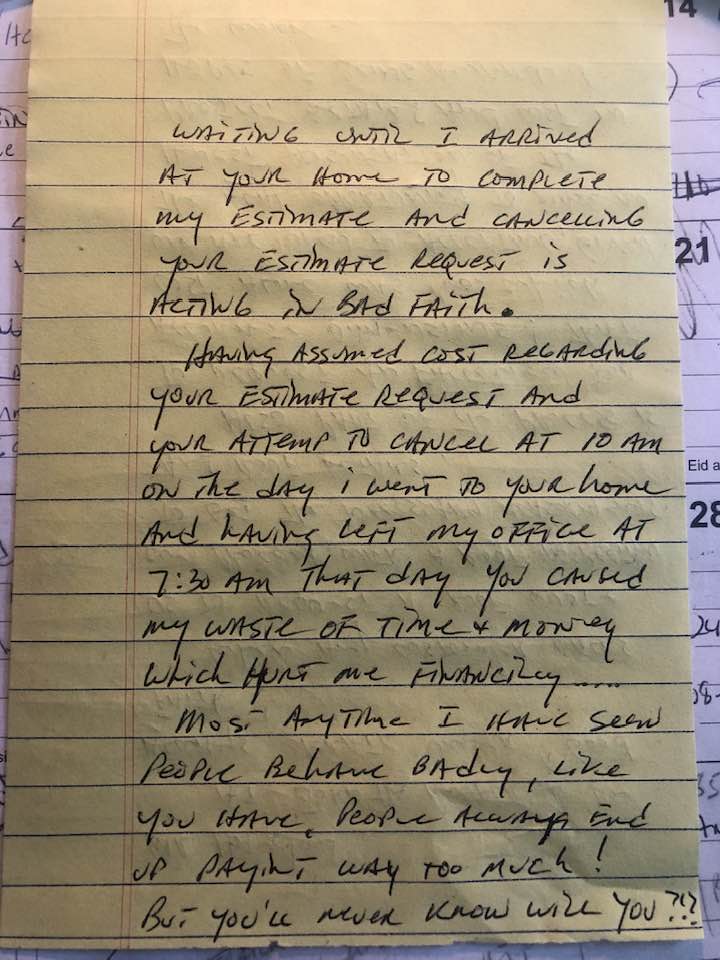 14
WAITING UNTIL I ARRIVED
AT YOUR HOME TO COMPLETE
MY ESTIMATE AND CANCELLING
YOUR ESTIMATE REQUEST IS
21
ACTING IN BAD FAITH.
HAVING ASSUMED COST REGARDING
YOUR ESTIMATE REQUEST AND
YOUR ATTEMP TO CANCEL AT 10 AM
Eid a
ON THE DAY I WENT TO YOUR HOME
28
AND HAVING LEFT MY OFFICE AT
7:30 AM THAT DAY YOU CAUSED
MY WASTE OF TIME & MONEY
WHICH HURT ME FINANCILEY.....
MOST ANYTIME I HAVE SEEN
PEOPLE BEHAVE BADLY, LIKE
YOU HAVE, PEOPLE ALWAYS END
UP PAYINT WAY TOO MUCH!
BUT YOU'LL NEVER KNOW WILL YOU?!?